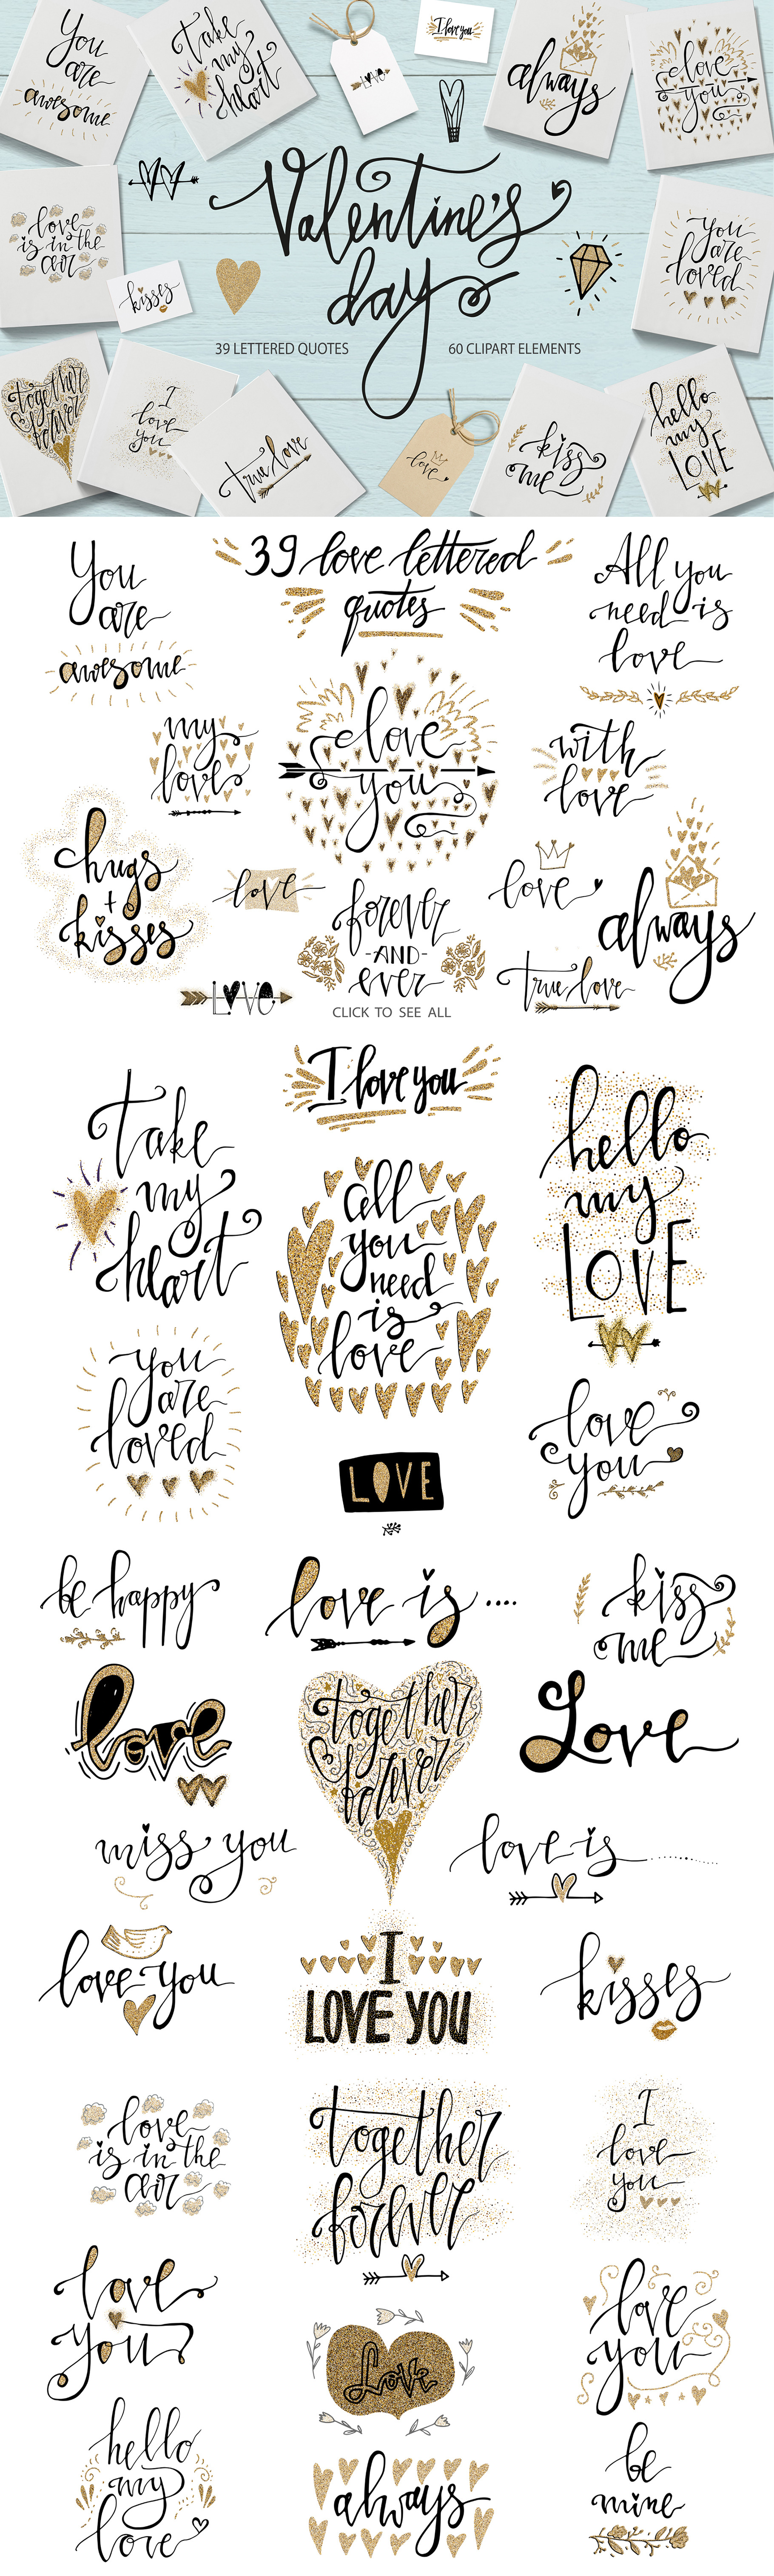 You
are
awesome
Take
my
heart
LOVE
I love you
always
love
you
love
is in the
air
kisses
Valentine's
day
you
are
loved
39 LETTERED QUOTES
60 CLIPART ELEMENTS
together
forever
I
love
you
true love
love
kiss
me
hello
my
LOVE
39 love lettered
quotes
You
are
awesome
All you
need is
love
my
love
love
you
with
love
hugs
+
kisses
love
love
always
forever
-AND-
ever
LOVE
true love
CLICK TO SEE ALL
I love you
Take
my
heart
hello
my
LOVE
all
you
need
is
love
you
are
loved
love
you
LOVE
be happy
love is ....
kiss
me
love
together
forever
Love
miss you
love is ..........
love you
I
LOVE YOU
kisses
love
is in the
air
together
forever
I
love
you
love
you
Love
love
you
hello
my
love
always
be
mine